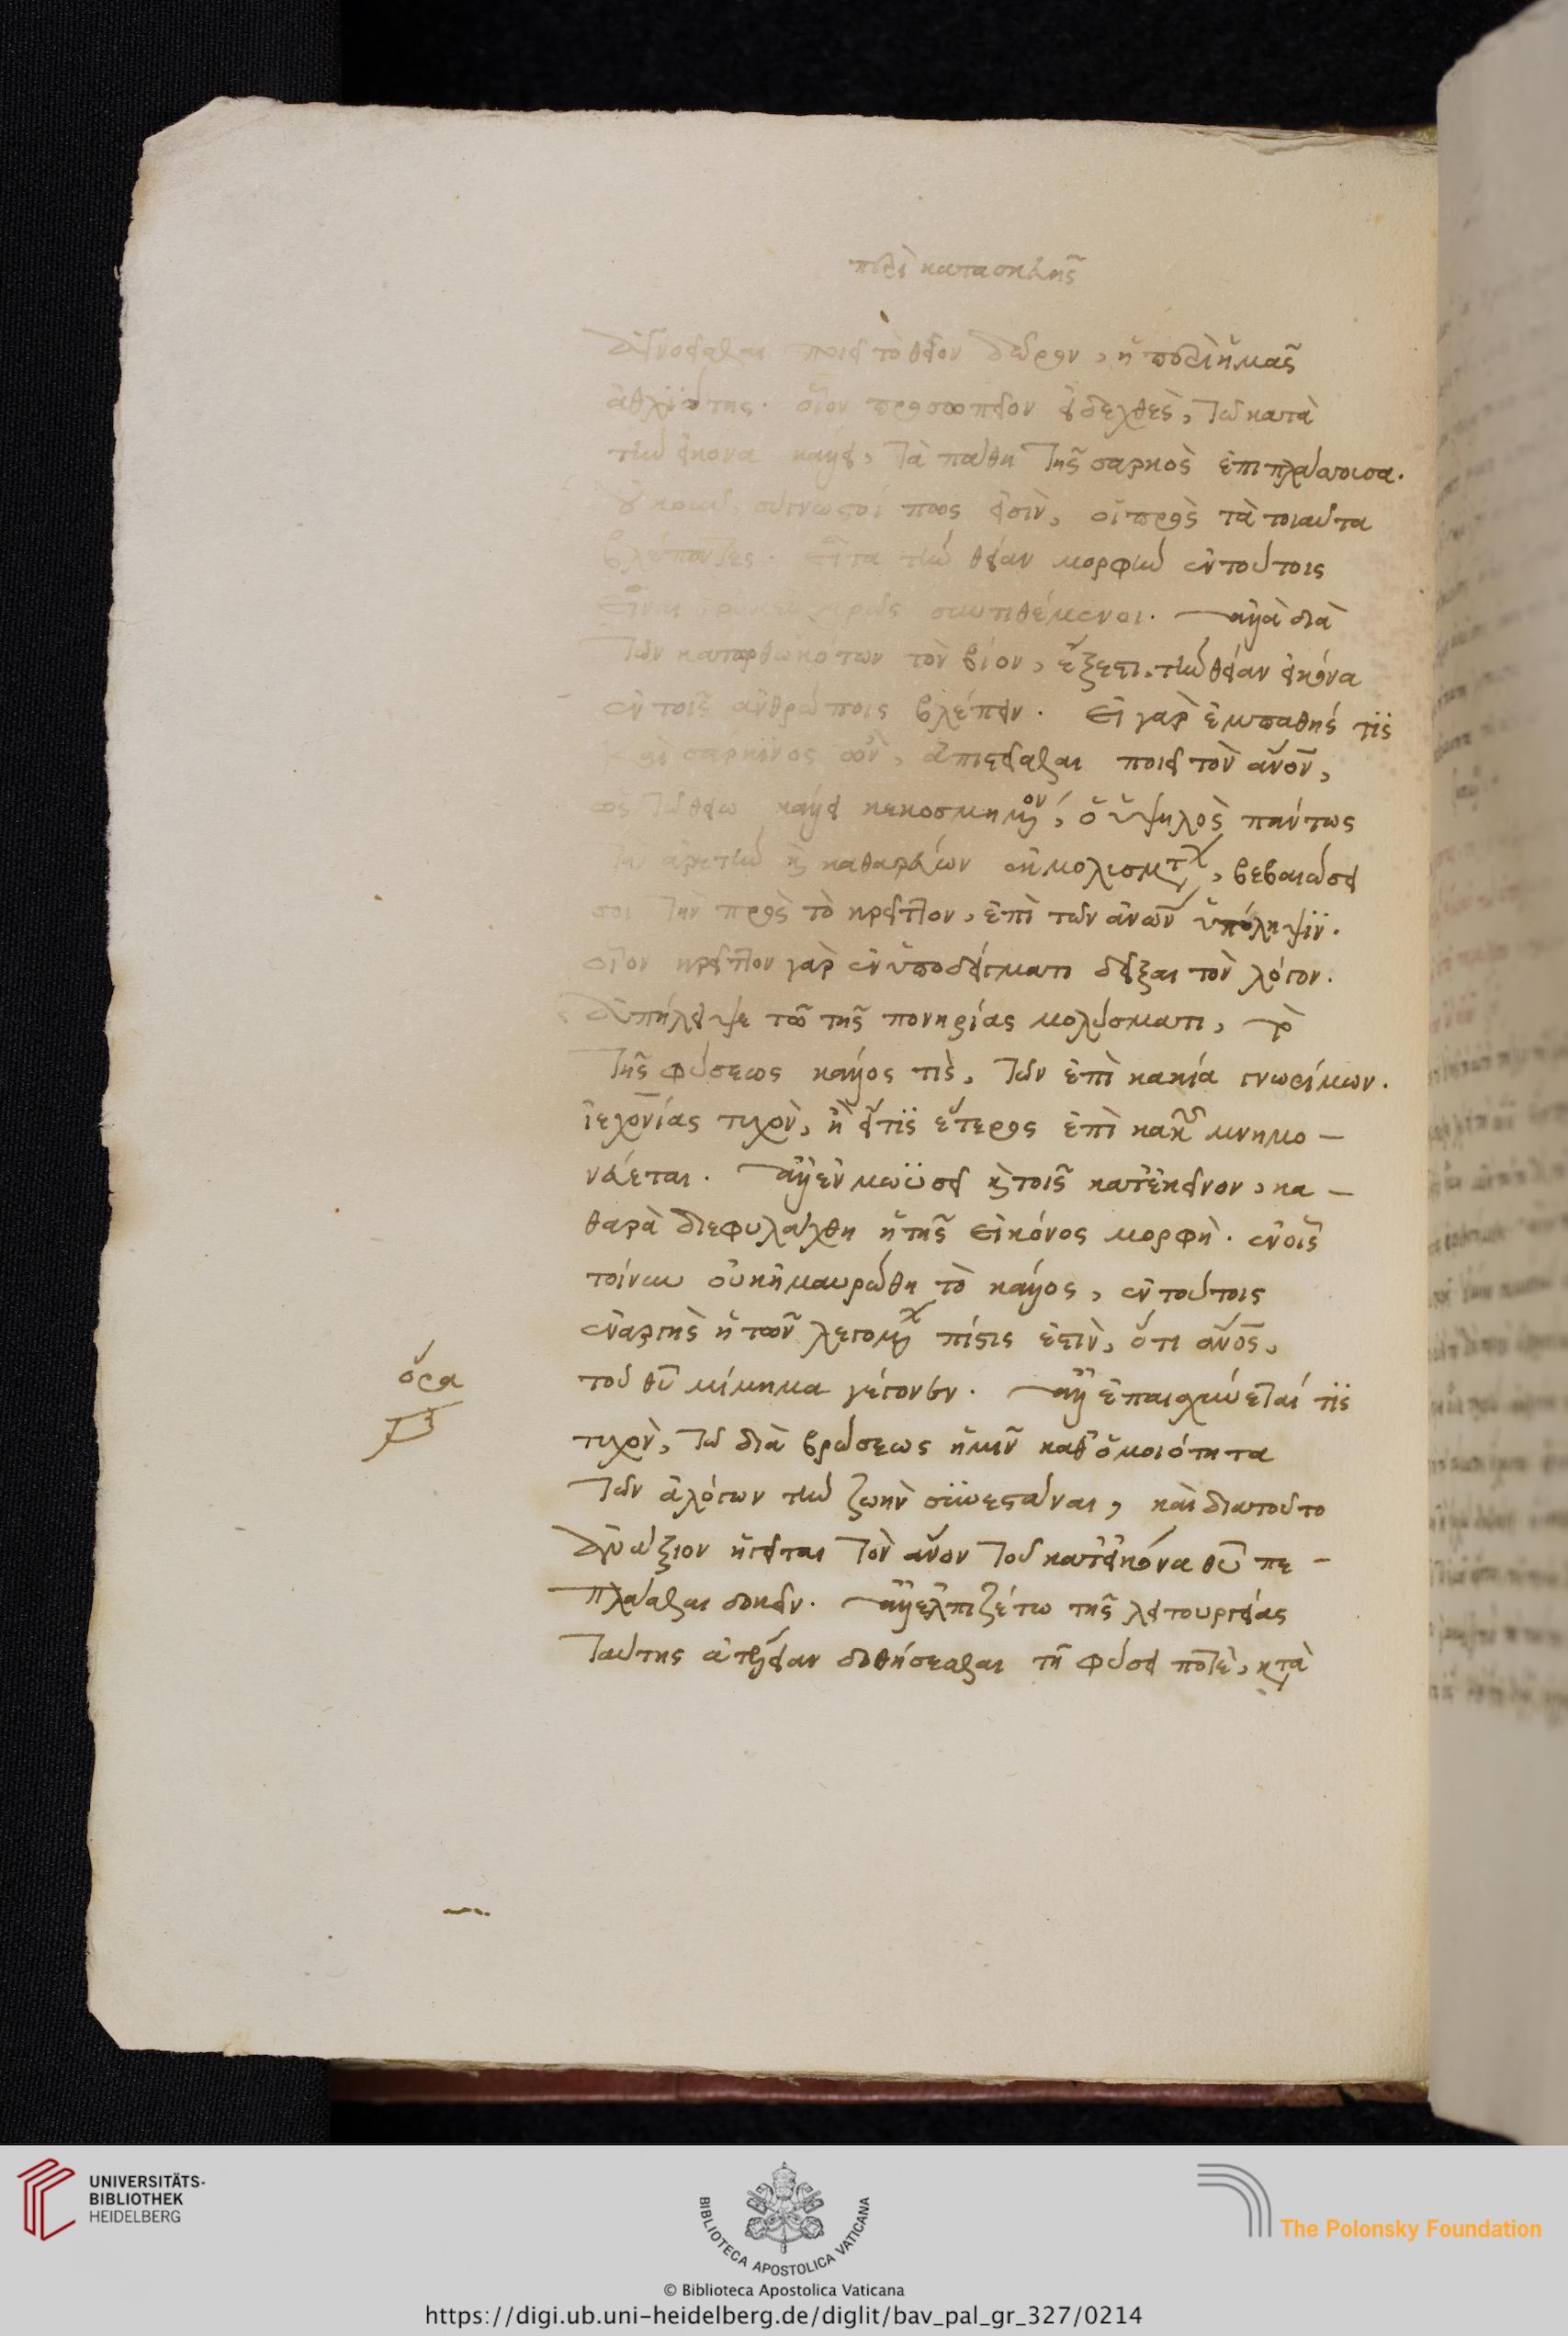 περὶ κατασκευῆς
ἀνενεργεῖσθαι ποιεῖ τὸ θεῖον δῶρον, ἡ περὶ ἡμᾶς
ἀθλιότης. οἷον προσωπεῖον εἰδεχθὲς, τῶ κατὰ
τὴν εἰκόνα κάλλει, τὰ πάθη τῆς σαρκὸς ἐπιπλάσσουσα.
οὐκοῦν συγνωστοί πως εἰσὶν, οἱ πρὸς τὰ τοιαῦτα
βλέποντες. εἶτα τὴν θείαν μορφὴν ἐν τούτοις
εἶναι συντιθέμενοι. ἀλλὰ διὰ
τῶν κατορθωκότων τὸν βίον, ἔξεστι τὴν θείαν εἰκόνα
ἐν τοῖς ἀνθρώποις βλέπειν. εἰ γὰρ ἐμπαθής τις
καὶ σάρκινος ὢν, ἀπιστεῖσθαι ποιεῖ τὸν ἄνον,
ὡς τῶ θείω κάλλει κεκοσμημένον, ὁ ὑψηλὸς πάντως
τὴν ἀρετὴν καὶ καθαρεύων ἐκ μολυσμάτων, βεβαιώσει
σοι τὴν πρὸς τὸ κρεῖττον, ἐπὶ τῶν ἀνων ὑπόληψιν.
οἷον κρεῖττον γὰρ ἐν ὑποδείγματι δεῖξαι τὸν λόγον.
ἀπήλειψε τῶ τῆς πονηρίας μολύσματι, τὸ
τῆς φύσεως κάλλος τὶς, τῶν ἐπὶ κακία γνωρίμων.
ἰεχονίας τυχὸν, ἢ εἴ τις ἕτερος ἐπὶ κακῶ μνημο-
νεύεται. ἀλλ' ἐν μωϋσεῖ καὶ τοῖς κατ' ἐκεῖνον, κα-
θαρὰ διεφυλάχθη ἡ τῆς εἰκόνος μορφὴ. ἐν οἷς
τοίνυν οὐκ ἠμαυρώθη τὸ κάλλος, ἐν τούτοις
ἐναργὴς ἡ τῶν λεγομένων πίστις ἐστὶν, ὅτι ἄνος,
τοῦ θυ μίμημα γέγονεν. ἀλλ' ἐπαισχύνεταί τις
τυχὸν, τῶ διὰ βρώσεως ἡμῖν καθ' ὁμοιότητα
τῶν ἀλόγων τὴν ζωὴν συνεστάναι, καὶ διατοῦτο
ἀνάξιον ἡγεῖται τὸν ἄνον τοῦ κατ' εἰκόνα θυ πε-
πλάσθαι δοκεῖν. ἀλλ' ἐλπιζέτω τῆς λειτουργείας
ταύτης ἀτέλειαν δοθήσεσθαι τῇ φύσει ποτὲ, κατὰ
ὅρα
UNIVERSITÄTS-
BIBLIOTHEK
HEIDELBERG
BIBLIOTECA APOSTOLICA VATICANA
The Polonsky Foundation
© Biblioteca Apostolica Vaticana
https://digi.ub.uni-heidelberg.de/diglit/bav_pal_gr_327/0214